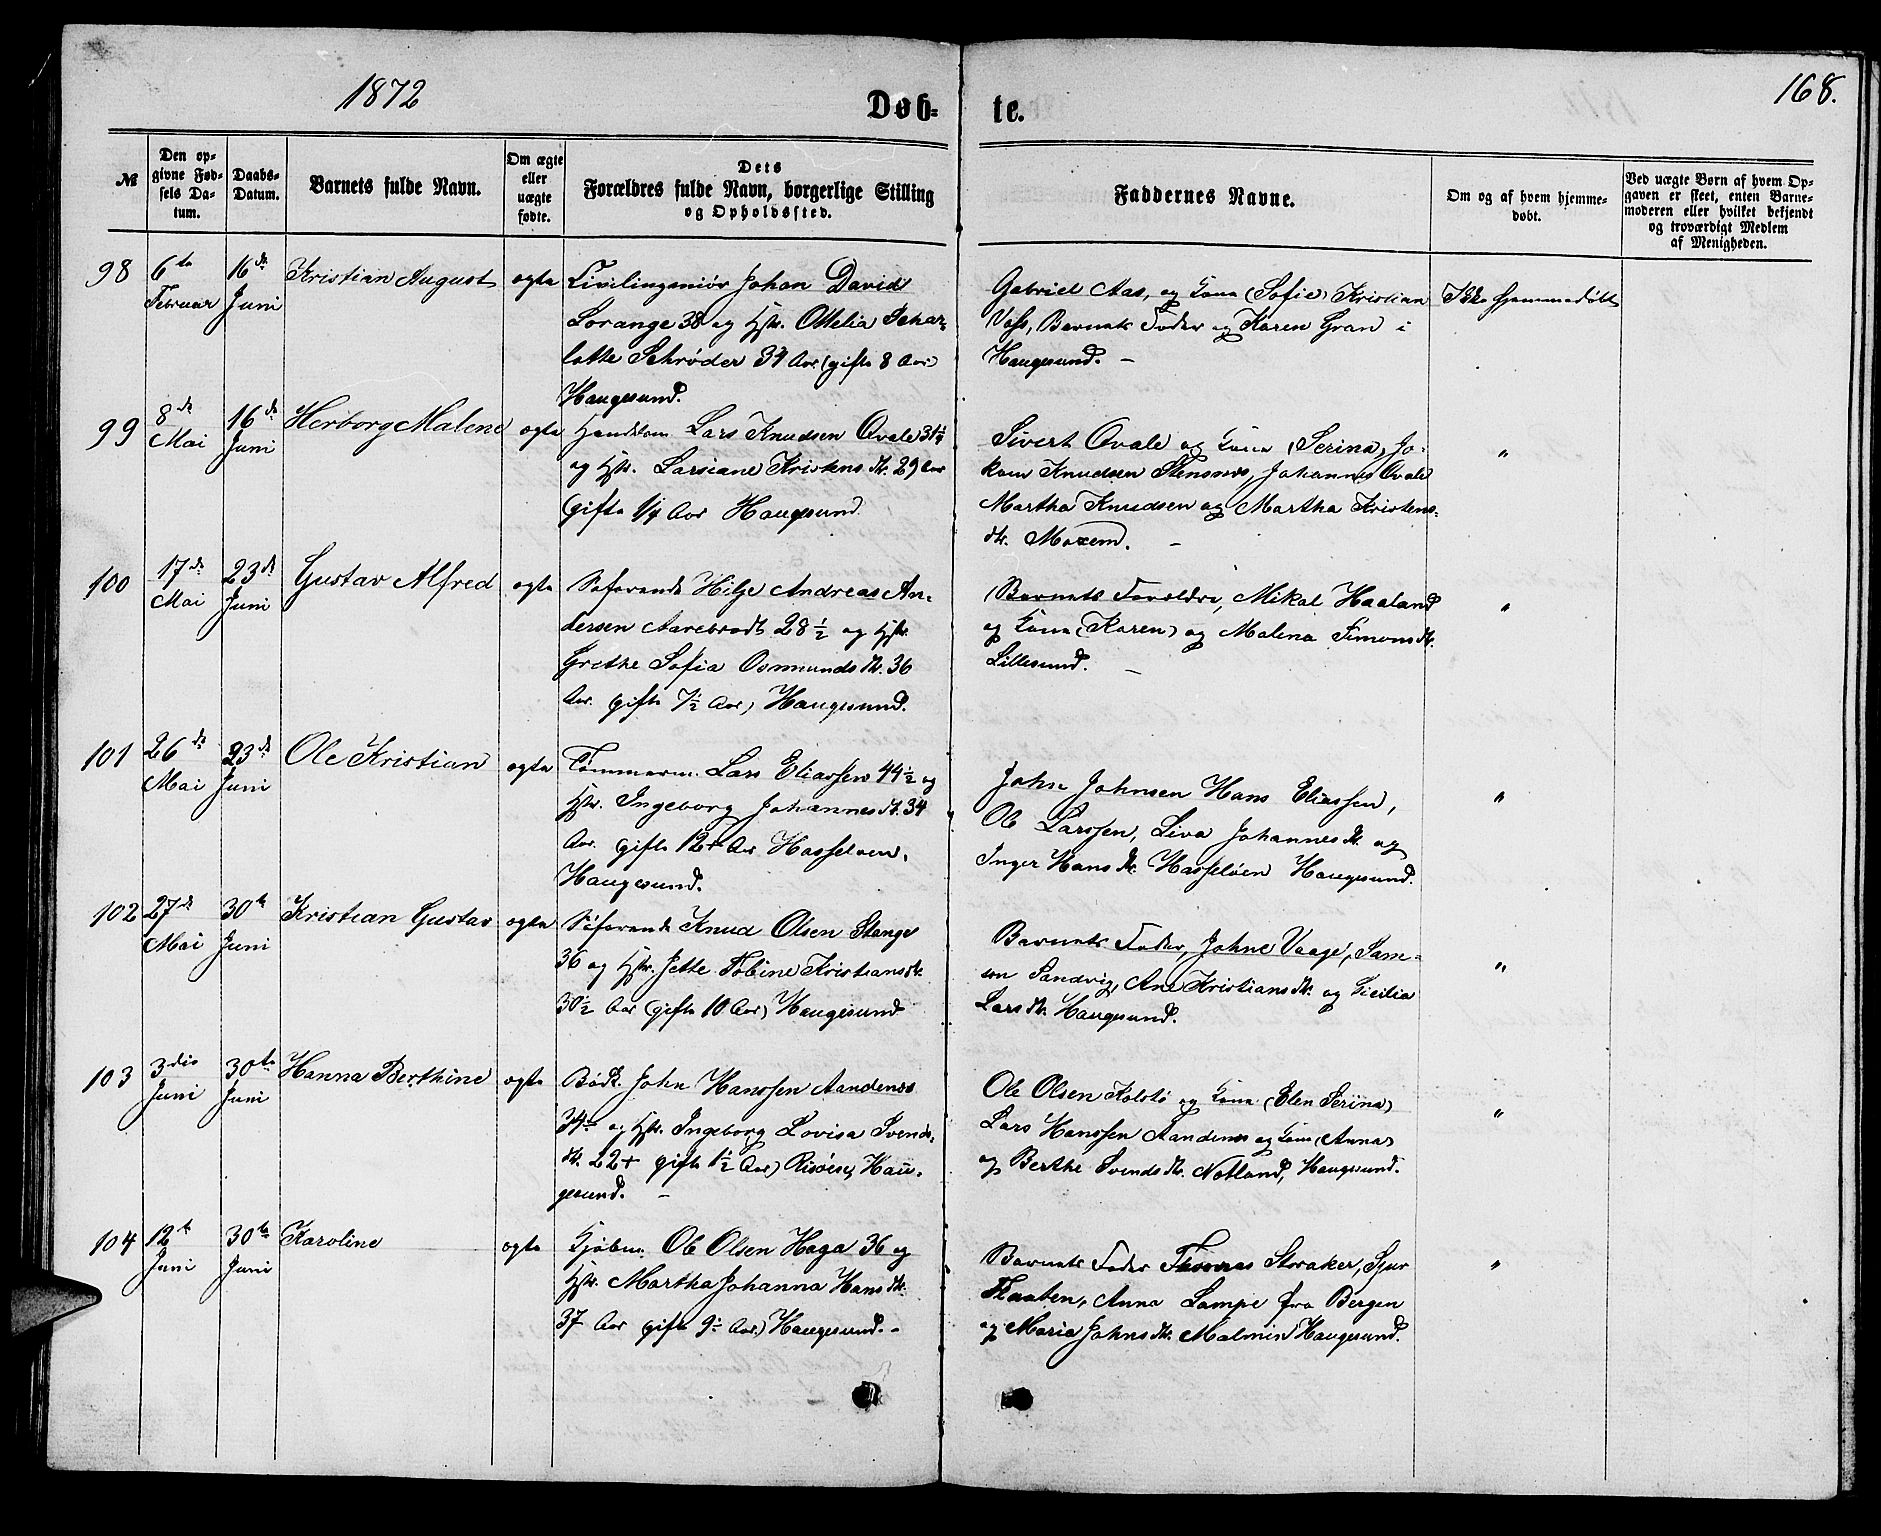 1872
Døb-
te.
168.
№
Den op-
givne Fød-
sels Da-
tum.
Daabs-
Datum.
Barnets fulde Navn.
Om ægte
eller
uægte
fødte.
Dets
Forældres fulde Navn, borgerlige Stilling
og Opholdssted.
Faddernes Navne.
Om og af hvem hjemme-
døbt.
Ved uægte Børn af hvem Op-
gaven er skeet, enten Barne-
moderen eller hvilket bekjendt
og troværdigt Medlem
af Menigheden.
98
6te
Februar
16de
Juni
Kristian August
ægte
Civilingeniør Johan David
Lorange 38 og Hstr. Ottelia Schar-
lotte Schrøder 34 Aar (gifte 8 Aar)
Haugesund.
Gabriel Aas, og Kone (Sofie) Kristian
Vass, Barnets Fader og Karen Gran i
Haugesund. —
Ikke hjemmedøbt
99
8de
Mai
16de
Juni
Herborg Malene
ægte
Handelsm. Lars Knudsen Qvale 31½
og Hstr. Larsiane Kristensdtr. 29 Aar
(gifte 1/4 Aar Haugesund
Sivert Qvale og Kone (Serina) Jo-
kum Knudsen Stensnes, Johannes Qvale
Martha Knudsen og Martha Kristens-
dtr. Moxem. —
"
100
17de
Mai
23de
Juni
Gustav Alfred
ægte
Søfarende Hilge Andreas An-
dersen Aarebrodt 28½ og Hstr.
Grethe Sofia Osmundsdtr. 36
Aar. gifte 7½ Aar) Haugesund.
Barnets Forældre, Mikal Haaland
og Kone (Karen) og Malena Simonsdtr.
Lillesund. —
"
101
26de
Mai
23de
Juni
Ole Kristian
ægte
Tømmerm. Lars Eliassen 44½ og
Hstr. Ingeborg Johannesdtr. 34
Aar. gifte 12+ Aar Hasseløen.
Haugesund.
John Johnsen Hans Eliassen,
Ole Larssen, Liva Johannesdtr. og
Inger Hansdtr. Hasseløen Haugesund.
"
102
27de
Mai
30te
Juni
Kristian Gustav
ægte
Søfarende Knud Olsen Stange
36 og Hstr. Jette Tobine Kristiansdtr.
30½ Aar (gifte 10 Aar) Haugesund
Barnets Fader, Johne Vaage, Sam-
son Sandvig, Ane Kristiansdtr. og Cicilia
Larsdtr. Haugesund.
"
103
3die
Juni
30te
Juni
Hanna Berthine
ægte
Bødk. John Hanssen Aandenes
34 og Hstr. Ingeborg Lovisa Svends-
dtr. 22+ gifte 1½ Aar) Risøen, Hau-
gesund. —
Ole Olsen Kolstø og Kone (Elen Serina)
Lars Hanssen Aandenes og Kone (Anna)
og Berthe Svendsdtr. Nøtland, Haugesund.
"
104
12te
Juni
30te
Juni
Karoline
ægte
Kjøbm. Ole Olsen Haga 36 og
Hstr. Martha Johanna Hansdtr.
37 Aar gifte 9½ Aar) Haugesund. -
Barnets Fader Thomas Storaker, Sjur
Flaaten, Anna Lampe fra Bergen
og Marie Johnsdtr. Malmin Haugesund.
"